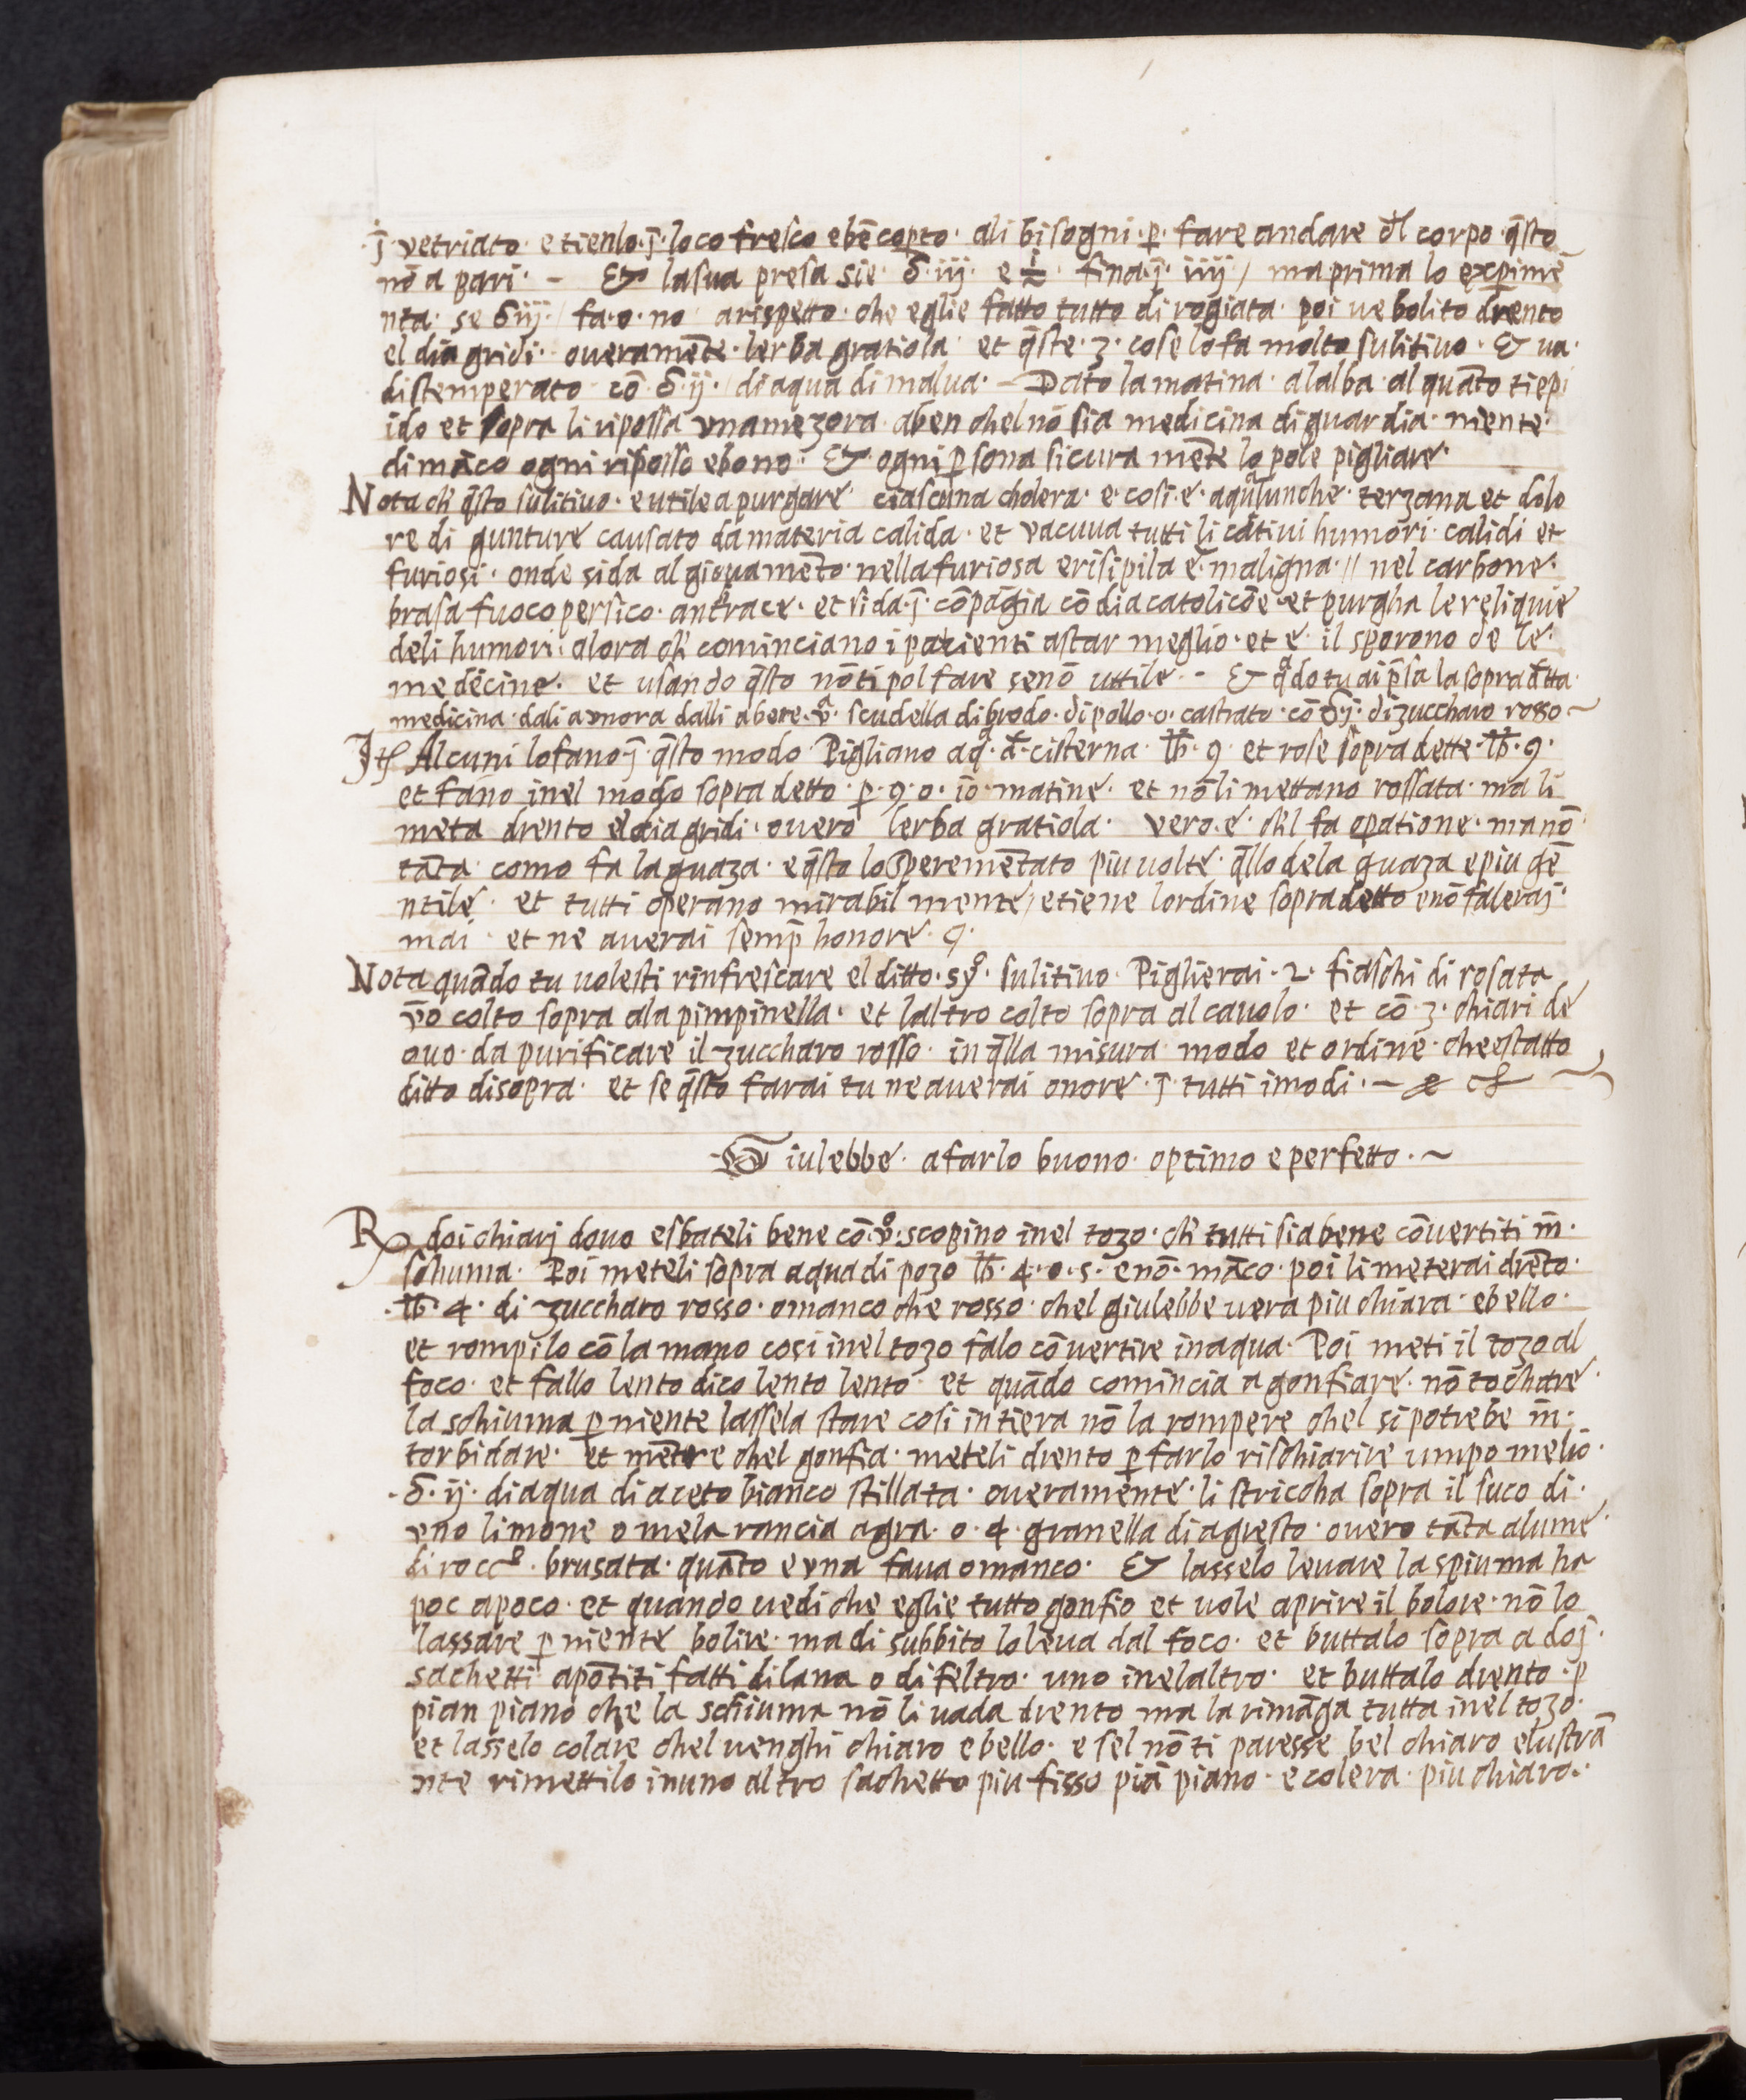 j̄ vetriato e tienlo j̄ loco fresco e bē coperto ali bisogni p̱ fare andare dl corpo q̄sto
nō a pari - & la sua presa sie ℥ iij e ½ fina j̄ iiij / ma prima lo expimē
nta se ℥ iij / fa o no a rispetto che eglie fatto tutto di rogiata poi ve bolito drento
el dia gridi overamēte lerba gratiola et q̄ste 3 cose lo fa molto sulitivo & va
distemperato cō ℥ ij / di aqua di malva - Dato la matina al alba alquāto tiepi
ido et sopra li ripossa una mezora a ben chel nō sia medicina di guardia niente
di māco ogni riposso e bono & ogni p̱sona sicura mēte lo pole pigliare
Nota ch' q̄sto sulitivo e utile a purgare ciascuna cholera e cosi e a qualunche terzana et dolo
re di gunture causato da materia calida et vacuua tutti li cātivi humori calidi et
furiosi onde si da al giovamēto nella furiosa erisipila e maligna // nel carbone
brasa fuoco persico antrace et si da j̄ cōpāgia cō diacatolicōe et purgha le reliquie
deli humori alora ch' cominciano i patienti a star meglio et e il sporono de le
medēcine et usando q̄sto nō ti pol fare senō uttile - & q̄do tu ai p̄sa la sopra dtta
medicina dali a un ora dalli a bere v̊ scudella di brodo di pollo o castrato cō ℥ j di zuccharo rosso ~
Itē Alcuni lo fano j̄ q̄sto modo Pigliano aq̄ d cisterna ℔ 9 et rose sopra dette ℔ 9
et fano inel modo sopra detto p̱ 9 o 10 matine et nō li mettano rossata ma li
meta drento el dia gridi overo lerba gratiola vero e ch'l fa opatione ma nō
tāta como fa la guaza e q̄sto lo sperementato piu volte q̄llo dela guaza e piu gē
ntile et tutti operano mirabil mente / e tiene lordine sopra detto e nō falerai
mai et ne averai semp̄ honore 9
Nota quādo tu volesti rinfrescare el ditto sẙ sulitivo Piglierai 2 fiaschi di rosata
v̄o colto sopra ala pimpinella et laltro colto sopra al cavolo et cō 3 chiari de
ovo da purificare il zuccharo rosso in q̄lla misura modo et ordine che e statto
ditto di sopra et se q̄sto farai tu ne averai onore j̄ tutti i modi -
Giulebbe a farlo buono optimo e perfetto ~
℞ doi chiarj dovo e sbateli bene cō v̊ scopino inel tozo ch' tutti sia bene cōvertiti in̄
schuma Poi meteli sopra aqua di pozo ℔ 4 o 5 e nō māco poi li meterai drēto
℔ 4 di zuccharo rosso o manco che rosso chel giulebbe vera piu chiara e bello
et rompilo cō la mano cosi inel tozo falo cōvertire in aqua Poi meti il tozo al
foco et fallo lento dico lento lento et quādo comincia a gonfiare nō tochare
la schiuma p̱ niente lassela stare cosi intiera nō la rompere chel si potrebe in̄
torbidare et mētre chel gonfia meteli drento p̱ farlo rischiarire um po melio
℥ ij di aqua di aceto bianco stillata overamente li striccha sopra il suco di
uno limone o mela rancia agra o 4 granella di agresto overo tāta alume
di rocc̊ brusata quāto e una fava o manco & lasselo levare la spiuma ha
poc a poco et quando vedi che eglie tutto gonfio et vole aprire il bolore nō lo
lassare p̱ niente bolire ma di subbito lo leva dal foco et buttalo sopra a doj
sachetti apōtiti fatti di lana o di feltro uno inelaltro et buttalo drento p
pian piano che la schiuma nō li vada drento ma la rimāga tutta inel tozo
et lasselo colare chel venghi chiaro e bello e sel nō ti paresse bel chiaro e lustrā
nte rimettilo in uno altro sachetto piu fisso piā piano e colera piu chiaro